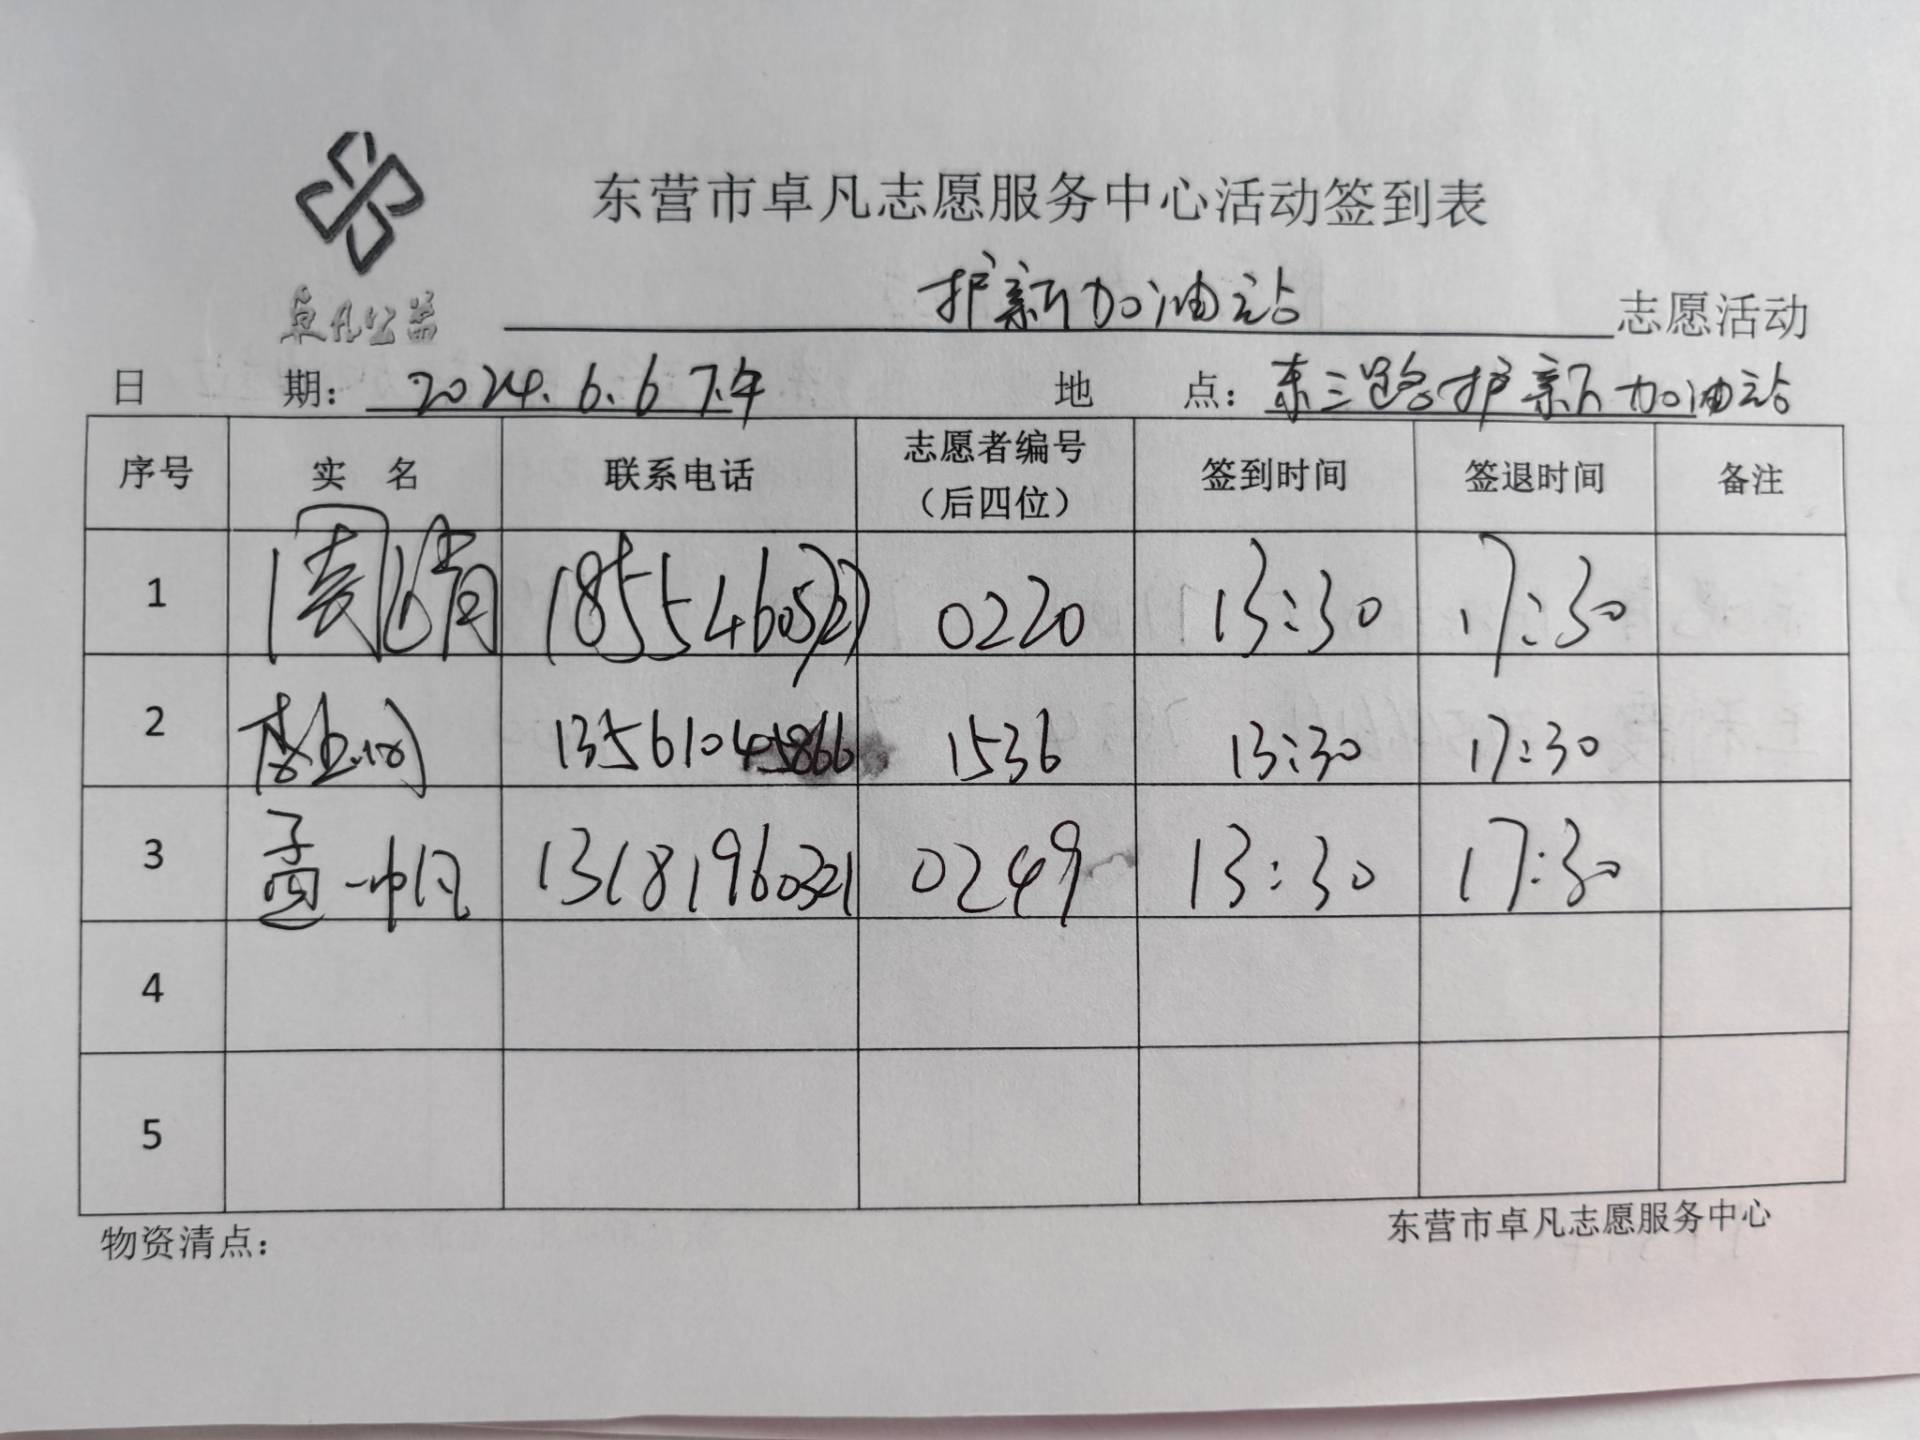 东营市卓凡志愿服务中心活动签到表
卓凡公益
护新加油站 志愿活动
日 期: 2024.6.6 下午 地 点: 东三路护新加油站
序号 实 名 联系电话 志愿者编号（后四位） 签到时间 签退时间 备注
1 周倩 0220 13:30 17:30
2 13561045866 1536 13:30 17:30
3 孟一帆 13181960321 0249 13:30 17:30
4
5
物资清点: 东营市卓凡志愿服务中心